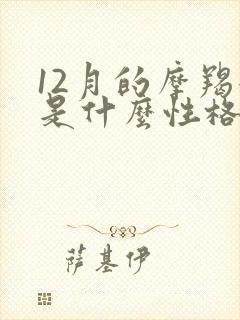 12月的摩羯
是什麼性格
萨基伊